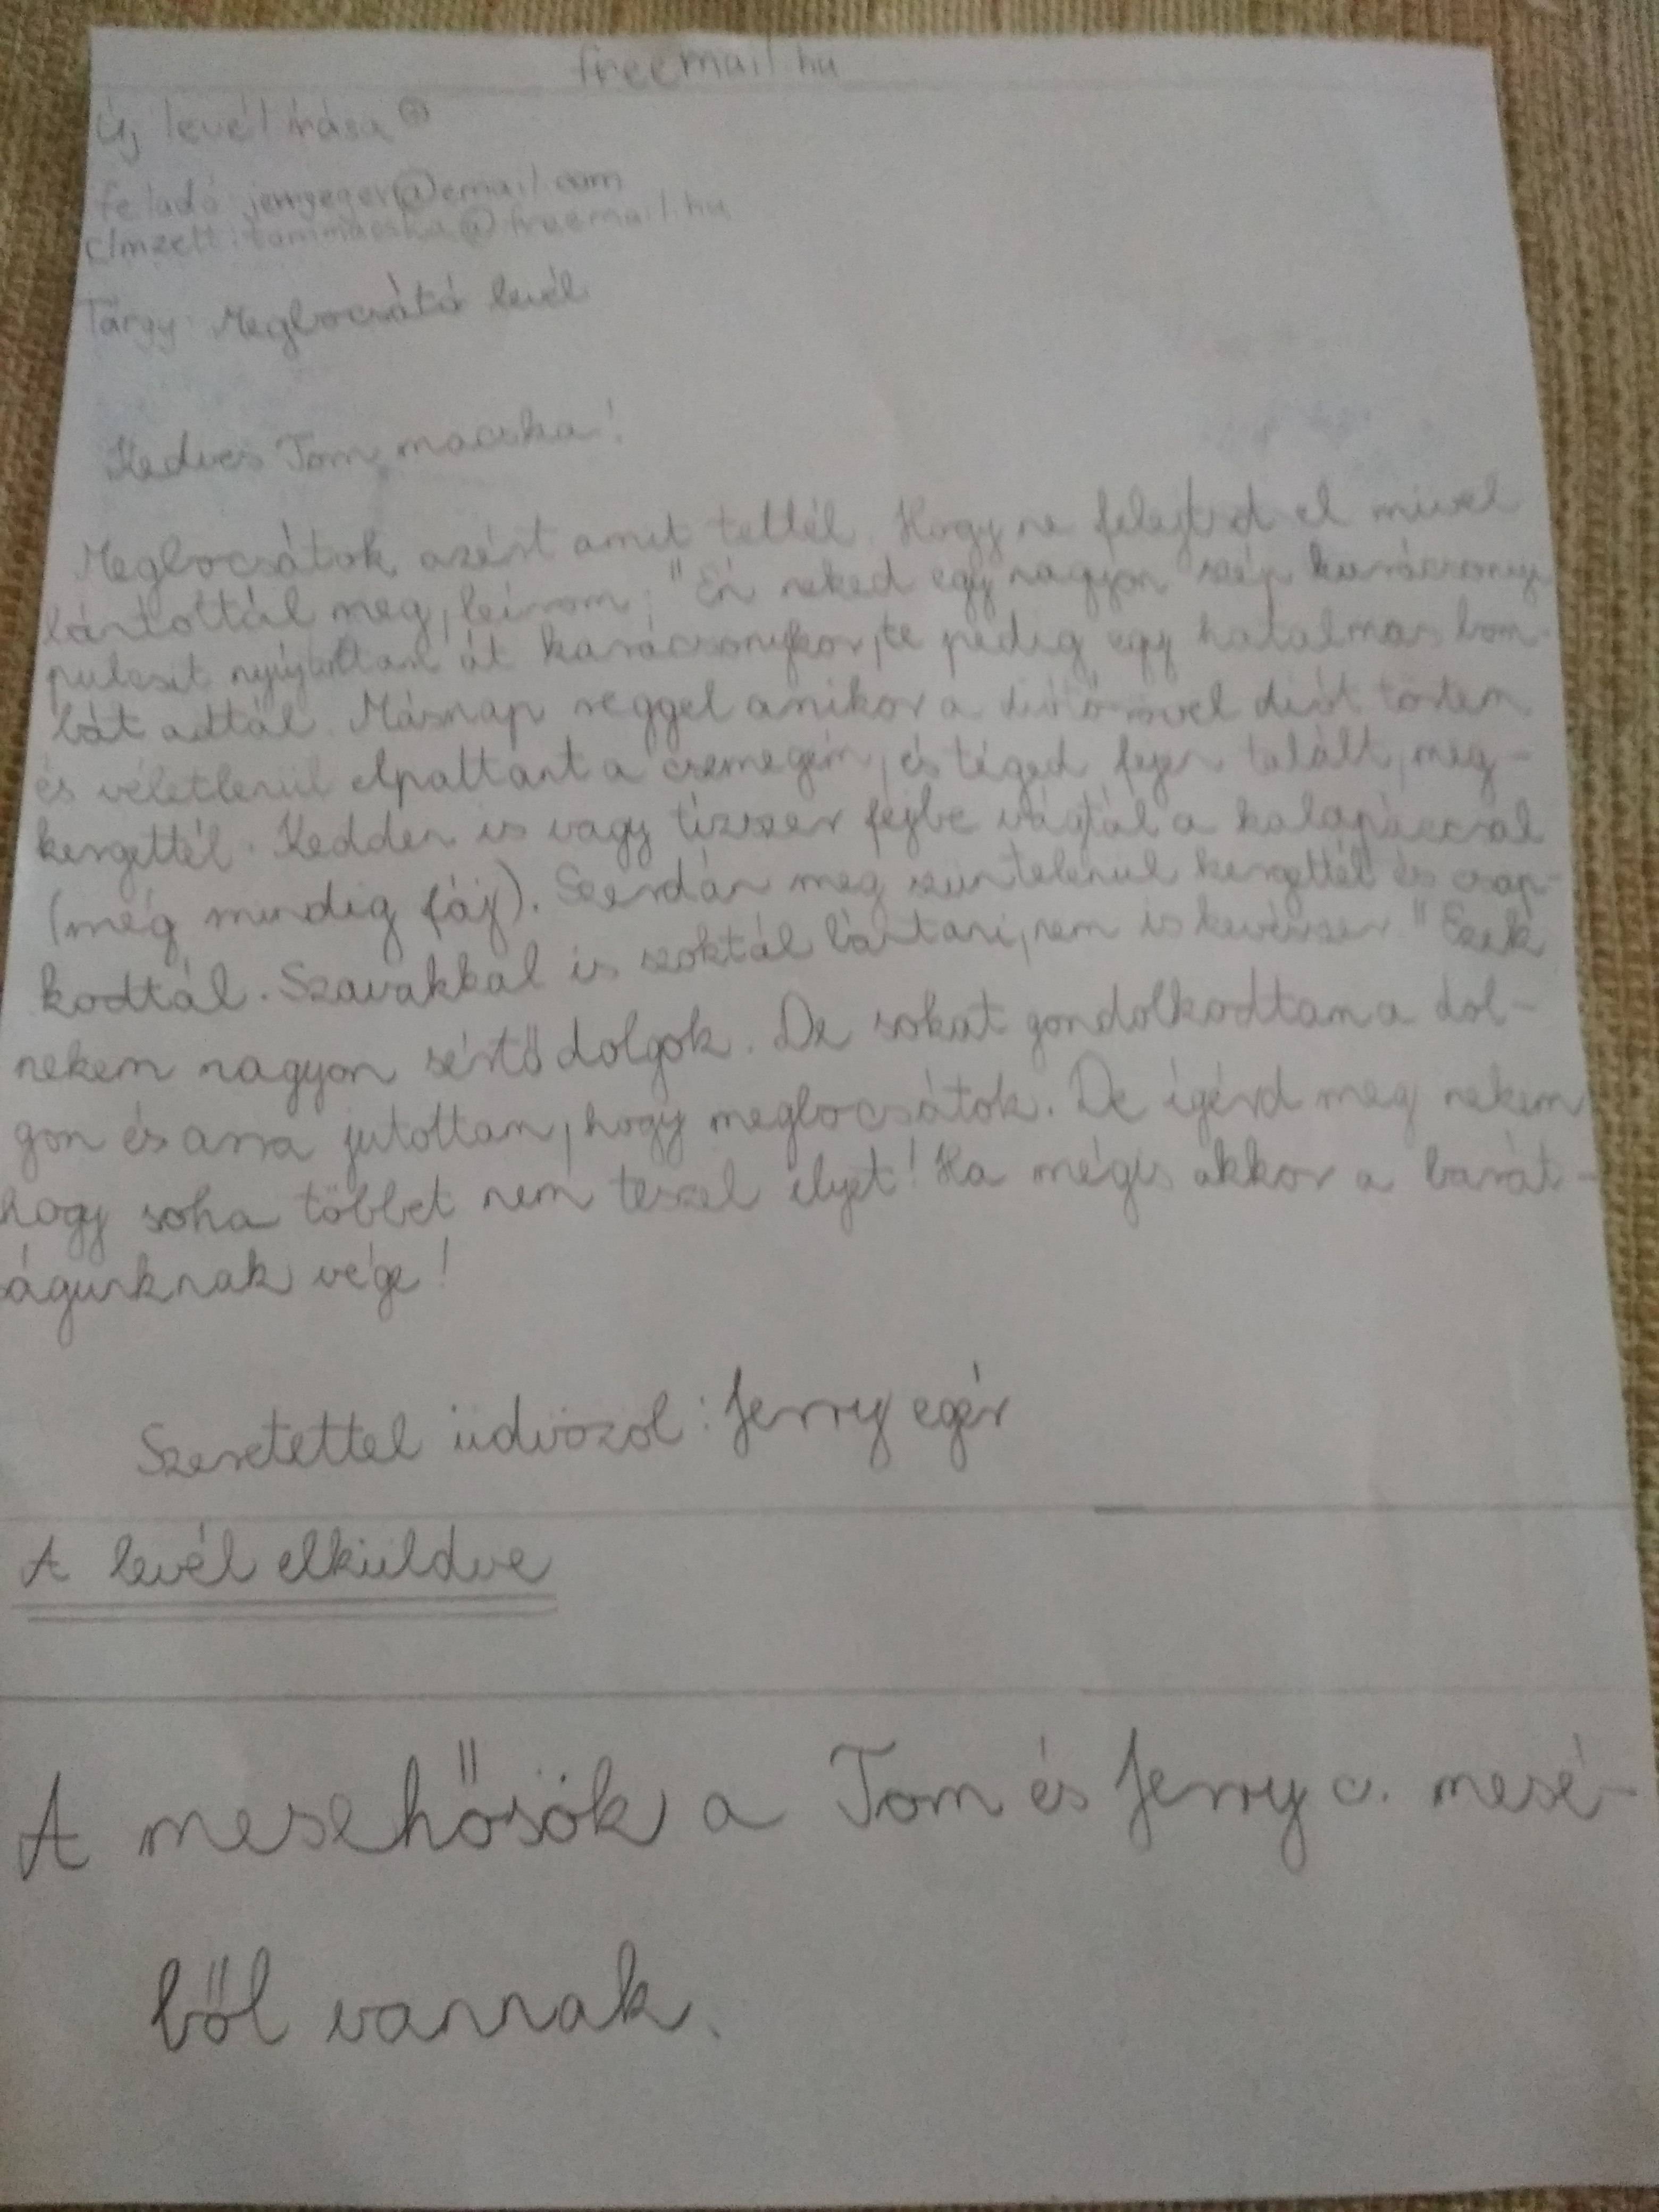 freemail.hu
Új levél írása
feladó: jerryeger@email.com
Címzett: tommacska@freemail.hu
Tárgy: Megbocsátó levél
Kedves Tom macska!
Megbocsátok azért amit tettél. Hogy ne felejtsd el mivel
bántottál meg, leírom: "Én neked egy nagyon szép karácsonyi
pulcsit nyújtottam át karácsonykor, te pedig egy hatalmas bom-
bát adtál. Másnap reggel amikor a diótörővel diót törtem
és véletlenül elpattant a csemegém, és téged fejen talált, meg-
kergettél. Kedden is vagy tízszer fejbe vágtál a kalapáccsal
(még mindig fáj). Szerdán meg szüntelenül kergettél és csap-
kodtál. Szavakkal is szoktál bántani, nem is kevésszer." Ezek
nekem nagyon sértő dolgok. De sokat gondolkodtam a dol-
gon és arra jutottam, hogy megbocsátok. De ígérd meg nekem
hogy soha többet nem teszel ilyet! Ha mégis akkor a barát-
ságunknak vége!
Szeretettel üdvözöl: Jerry egér
A levél elküldve
A mesehősök a Tom és Jerry c. mesé-
ből vannak.